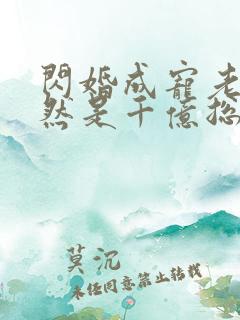 閃婚成寵老
然是千億總
莫沉
未经同意禁止转载